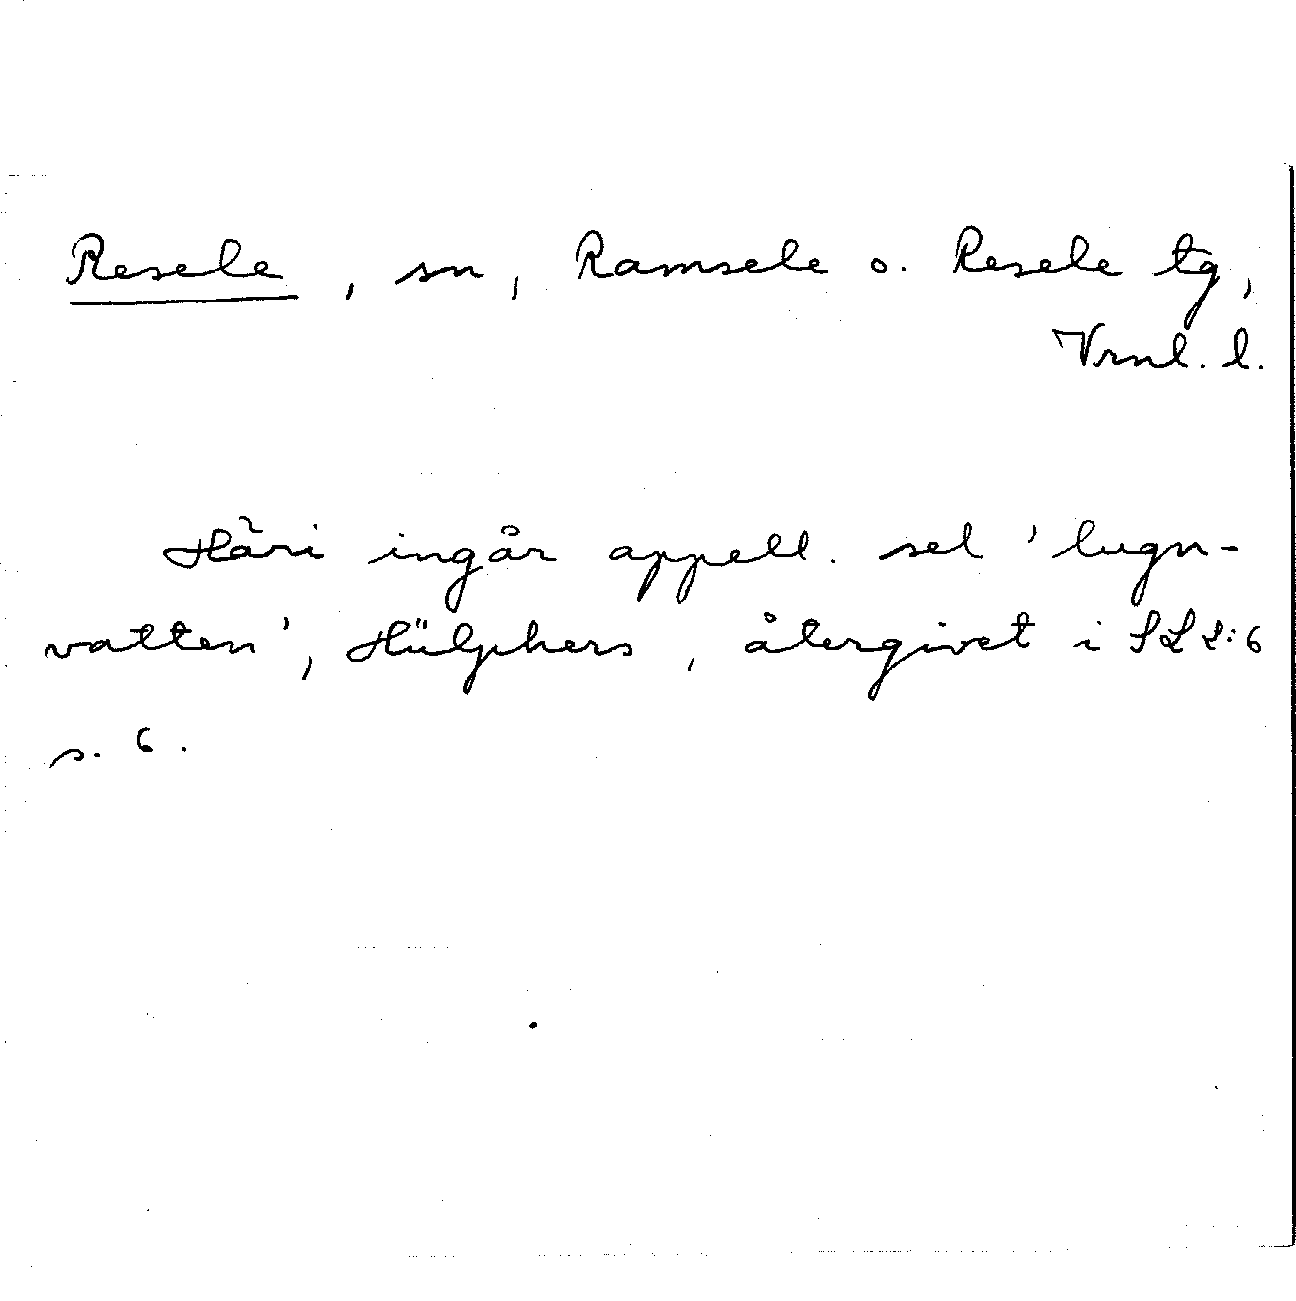 Resele, sn, Ramsele o. Resele tg,
Vrnl. l.
Häri ingår appell. sel 'lugn-
vatten', Hülphers, återgivet i SL 2:6
s. 6.